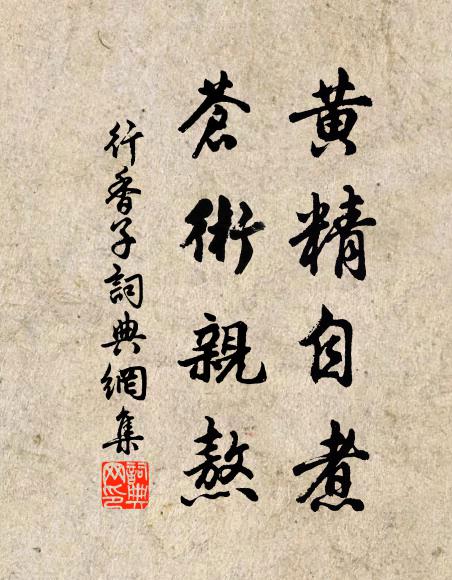 黃精自煮
蒼術親熬
行香子詞典網集
詞典
网印